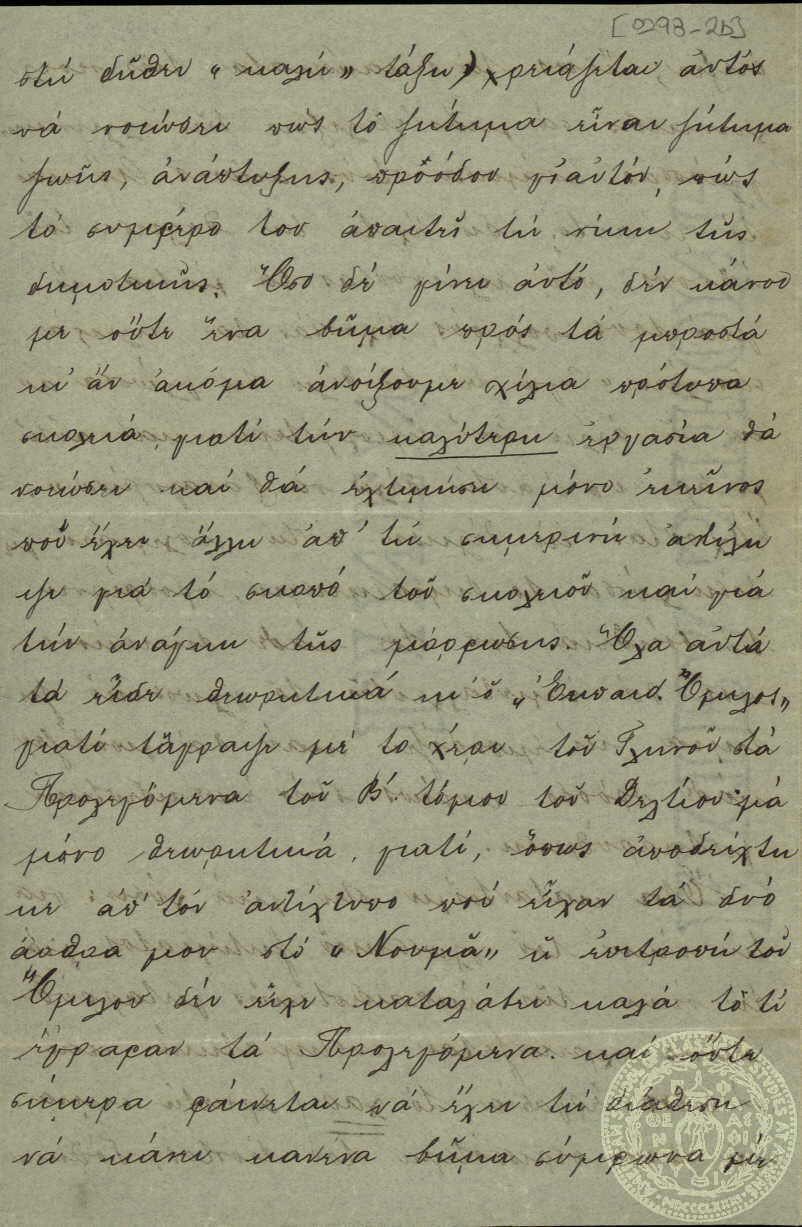 [0293-2b]
στή δῆθεν „ καλή ” τάξη) χρειάζεται αὐτός
νά νοιώσει πως τό ζήτημα εἶναι ζήτημα
ζωῆς, ἀνάπτυξης, προόδου γι αὐτόν, πώς
τό συμφέρο του ἀπαιτεῖ τή νίκη τῆς
δημοτικῆς. Ὅσο δέ γίνει αὐτό, δέν κάνου
με οὔτε ἕνα βῆμα πρός τά μπροστά
κι ἄν ἀκόμα ἀνοίξουμε χίλια πρότυπα
σκολειά, γιατί τήν καλύτερη ἐργασία θά
νοιώσει καί θά ἐχτιμήση μόνο ἐκεῖνος
ποῦ ἔχει ἄλλη ἀπ' τή σημερινή ἀντίλη
ψη γιά τό σκοπό τοῦ σκολειοῦ καί γιά
τήν ἀνάγκη τῆς μόρφωσης. Ὅλα αὐτά
τά εἶδε θεωρητικά κι ὁ „ Ἐκπαιδ. Ὅμιλος„
γιατί τἄγραψε μέ το χέρι τοῦ Γληνοῦ στά
Προλεγόμενα τοῦ Β΄. τόμου τοῦ Δελτίου· μά
μόνο θεωρητικά, γιατί, ὅπως ἀποδείχτη
κε ἀπ' τόν ἀντίχτυπο πού εἶχαν τά δυό
ἄρθρα μου στό „ Νουμᾶ„ ἡ ἐπιτροπή τοῦ
Ὅμιλου δέν εἶχε καταλάβει καλά τό τί
ἔγραφαν τά Προλεγόμενα. καί οὔτε
σήμερα φάινεται νά ἔχει τή διάθεση
νά κάνει κανενα βῆμα σύμφωνα μέ